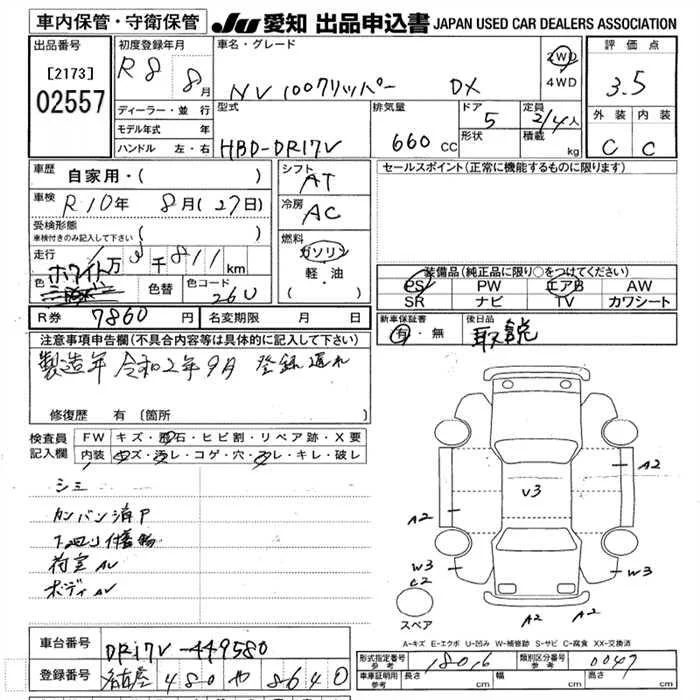 車内保管・守衛保管
JU 愛知 出品申込書 JAPAN USED CAR DEALERS ASSOCIATION
出品番号
[2173]
02557
初度登録年月
R8 8月
車名・グレード
NV100クリッパー DX
2WD
4WD
評価点
3.5
ディーラー・並行
モデル年式 年
ハンドル 左・右
型式
HBD-DR17V
排気量
660 CC
ドア
5
形状
定員
2/4人
積載
kg
外装 内装
C C
車歴
自家用・( )
車検
R10年 8月(27日)
受検形態
車検付きのみ記入して下さい( )
走行
万 千811km
色 ホワイト
色替
色コード
26U
シフト
AT
冷房
AC
燃料
ガソリン
軽・油
・( )
セールスポイント(正常に機能するものに限ります)
装備品(純正品に限り○をつけてください)
PS PW エアB AW
SR ナビ TV カワシート
R券 7860円
名変期限 月 日
新車保証書
有・無
後日品
取説
注意事項申告欄(不具合内容等は具体的に記入して下さい)
製造年 令和2年9月 登録遅れ
修復歴 有 (箇所
検査員
記入欄
FW キズ・飛石・ヒビ割・リペア跡・X要
内装 キズ・汚レ・コゲ・穴・スレ・キレ・破レ
シミ
カンバン消P
下廻り
荷室AU
ボディAU
A2
V3
A2
W3
C2
W3
A2 A2
スペア
A-キズ E-エクボ U-凹み W-補修跡 S-サビ C-腐食 XX-交換済
車台番号
DR17V-449580
登録番号
名古屋 480 や 8640
形式指定番号
参考
18016
類別区分番号
参考
0047
車庫証明用
参考
長さ cm
幅 cm
高さ cm